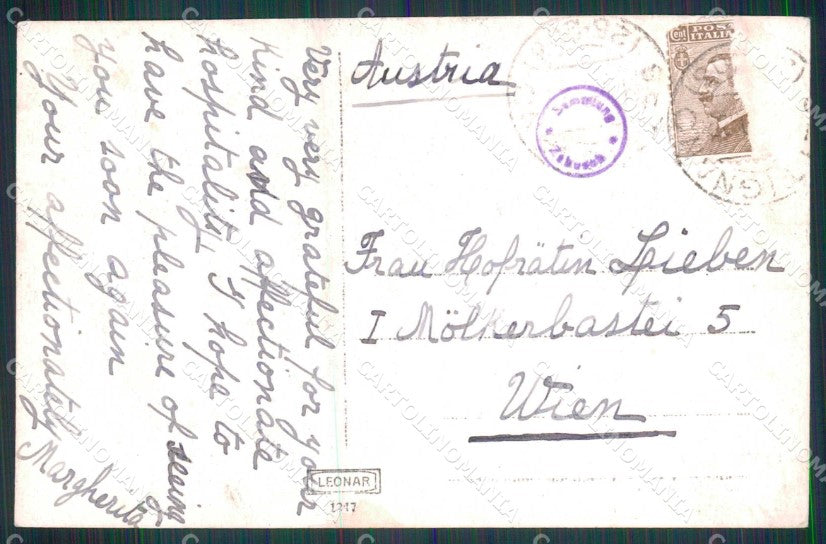 Very very grateful for your
kind and affectionate
hospitality I hope to
have the pleasure of seeing
you soon again
Your affectionately
Margherita
Austria
Frau Hofrätin Lieben
I Mölkerbastei 5
Wien
Cent
POS
ITALIA
Sammlung
LEONAR
1317
CARTOLINOMANIA